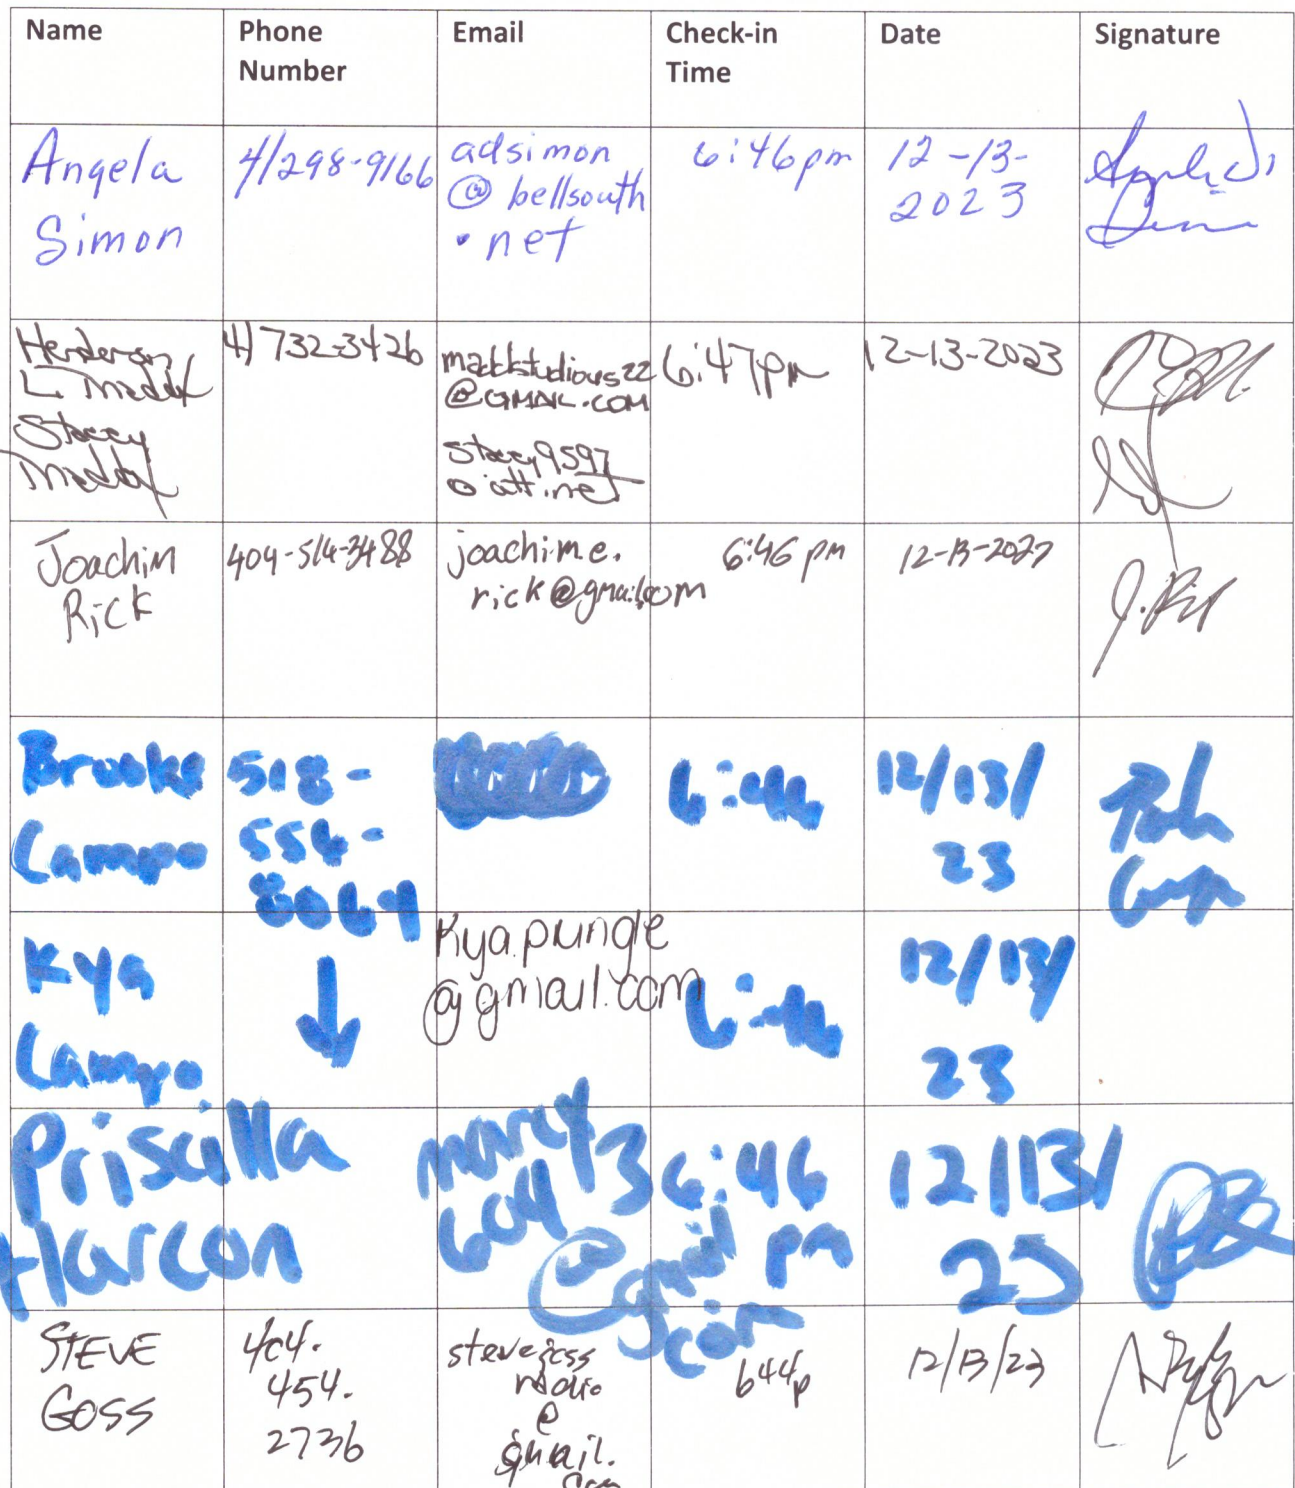 Name
Phone
Number
Email
Check-in
Time
Date
Signature
Angela
Simon
4/298-9166
adsimon
@ bellsouth
.net
6:46pm
12-13-
2023
Henderson
L Maddox
Stacey
Maddox
4/732-3426
maddstudious22
@GMAIL.COM
stacey9597
@att.net
6:47pm
12-13-2023
Joachim
Rick
404-514-3488
joachim.e.
rick@gmail.com
6:46 pm
12-13-2023
J. Rick
Brooke
Campo
518-
556-
8064
6:46
12/13/
23
Kya
Campo
↓
Kya.pungle
@gmail.com
6:46
12/13/
23
Priscilla
Harcon
marcy3
604
@gmail
com
6:46
pm
12/13/
23
STEVE
GOSS
404.
454.
2736
stevegoss
radio
@
gmail.
com
644p
12/13/23